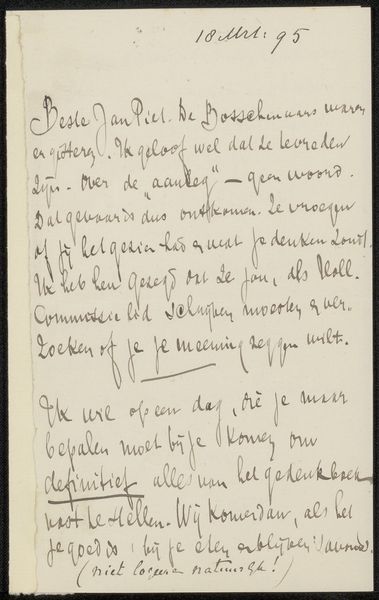 18 Mrt. 95
Beste Jan Piet. De Bosschenaars waren
er gisteren. Ik geloof wel dat ze tevreden
zijn. Over de "aanleg" — geen woord.
Dat gevaar is dus ontkomen. Ze vroegen
of jij het gezien had en wat je denken zoudt.
Ik heb hen gezegd dat ze jou, als Holl.
Commissie lid schrijven moesten en ver-
zoeken of je je meening zeggen wilt.
Ik wil op een dag, die je maar
bepalen moet bij je komen om
definitief alles van het gedenkboek
vast te stellen. Wij komen dan, als het
je goed is bij je eten en blijven 's avonds.
(niet logeeren natuurlijk!)